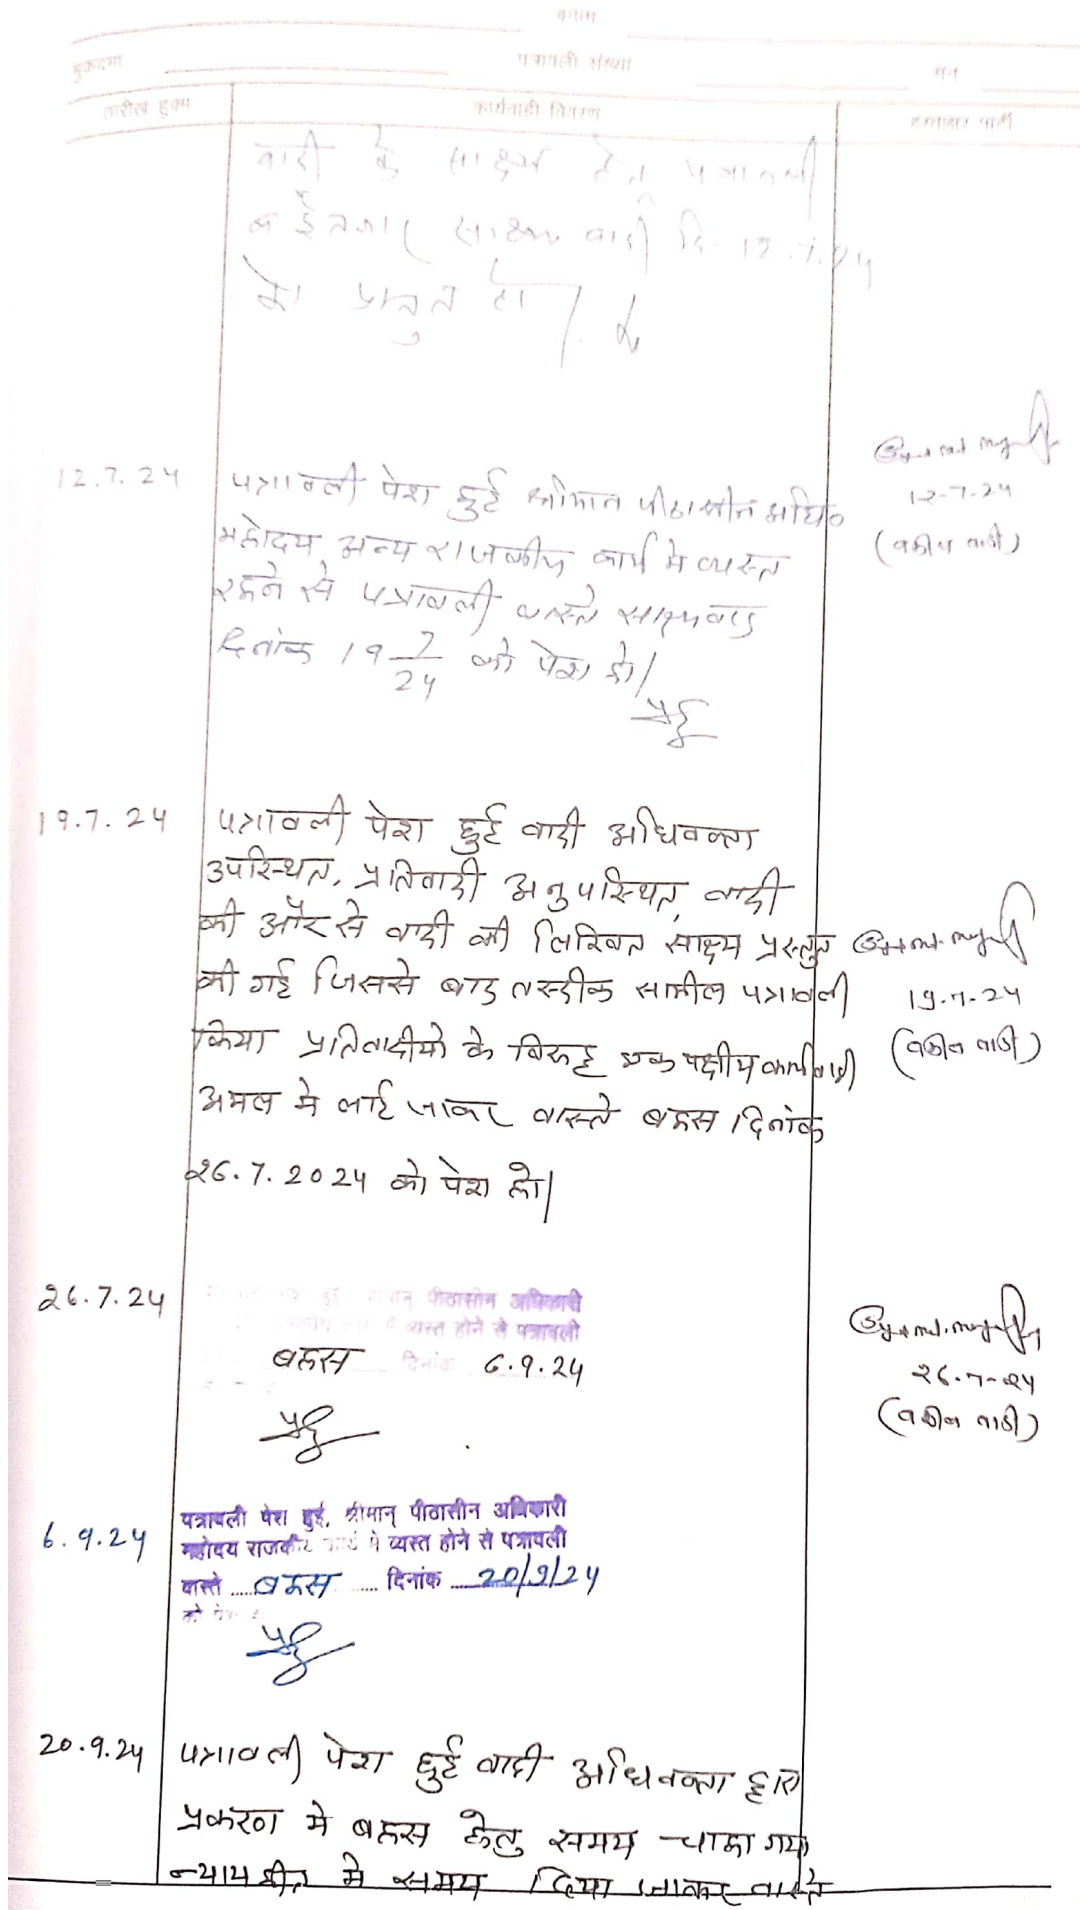 मुकदमा पत्रावली संख्या सन
तारीख हुक्म कार्यवाही विवरण हस्ताक्षर पार्टी
वादी के साक्ष्य हेतु पत्रावली
साक्ष्य वादी दि. 12.7.24
को प्रस्तुत हो।
12.7.24 पत्रावली पेश हुई श्रीमान पीठासीन अधि०
महोदय अन्य राजकीय कार्य मे व्यस्त
रहने से पत्रावली वास्ते साक्ष्य वादी
दिनांक 19 7/24 को पेश हो।
12-7-24
(वकील वादी)
19.7.24 पत्रावली पेश हुई वादी अधिवक्ता
उपस्थित, प्रतिवादी अनुपस्थित, वादी
की और से वादी की लिखित साक्ष्य प्रस्तुत
की गई जिससे बाद तस्दीक सामील पत्रावली
किया प्रतिवादीयो के विरूद्ध एक पक्षीय कार्यवाही
अमल मे लाई जाकर वास्ते बहस दिनांक
26.7.2024 को पेश हो।
19-7-24
(वकील वादी)
26.7.24 पीठासीन अधिकारी
व्यस्त होने से पत्रावली
बहस दिनांक 6.9.24
26-7-24
(वकील वादी)
6.9.24 पत्रावली पेश हुई, श्रीमान् पीठासीन अधिकारी
महोदय राजकीय कार्य मे व्यस्त होने से पत्रावली
वास्ते ..... बहस ..... दिनांक ..... 20/9/24
को पेश
20.9.24 पत्रावली पेश हुई वादी अधिवक्ता द्वारा
प्रकरण मे बहस हेतु समय चाहा गया
न्यायहीत मे समय दिया जाकर वास्ते